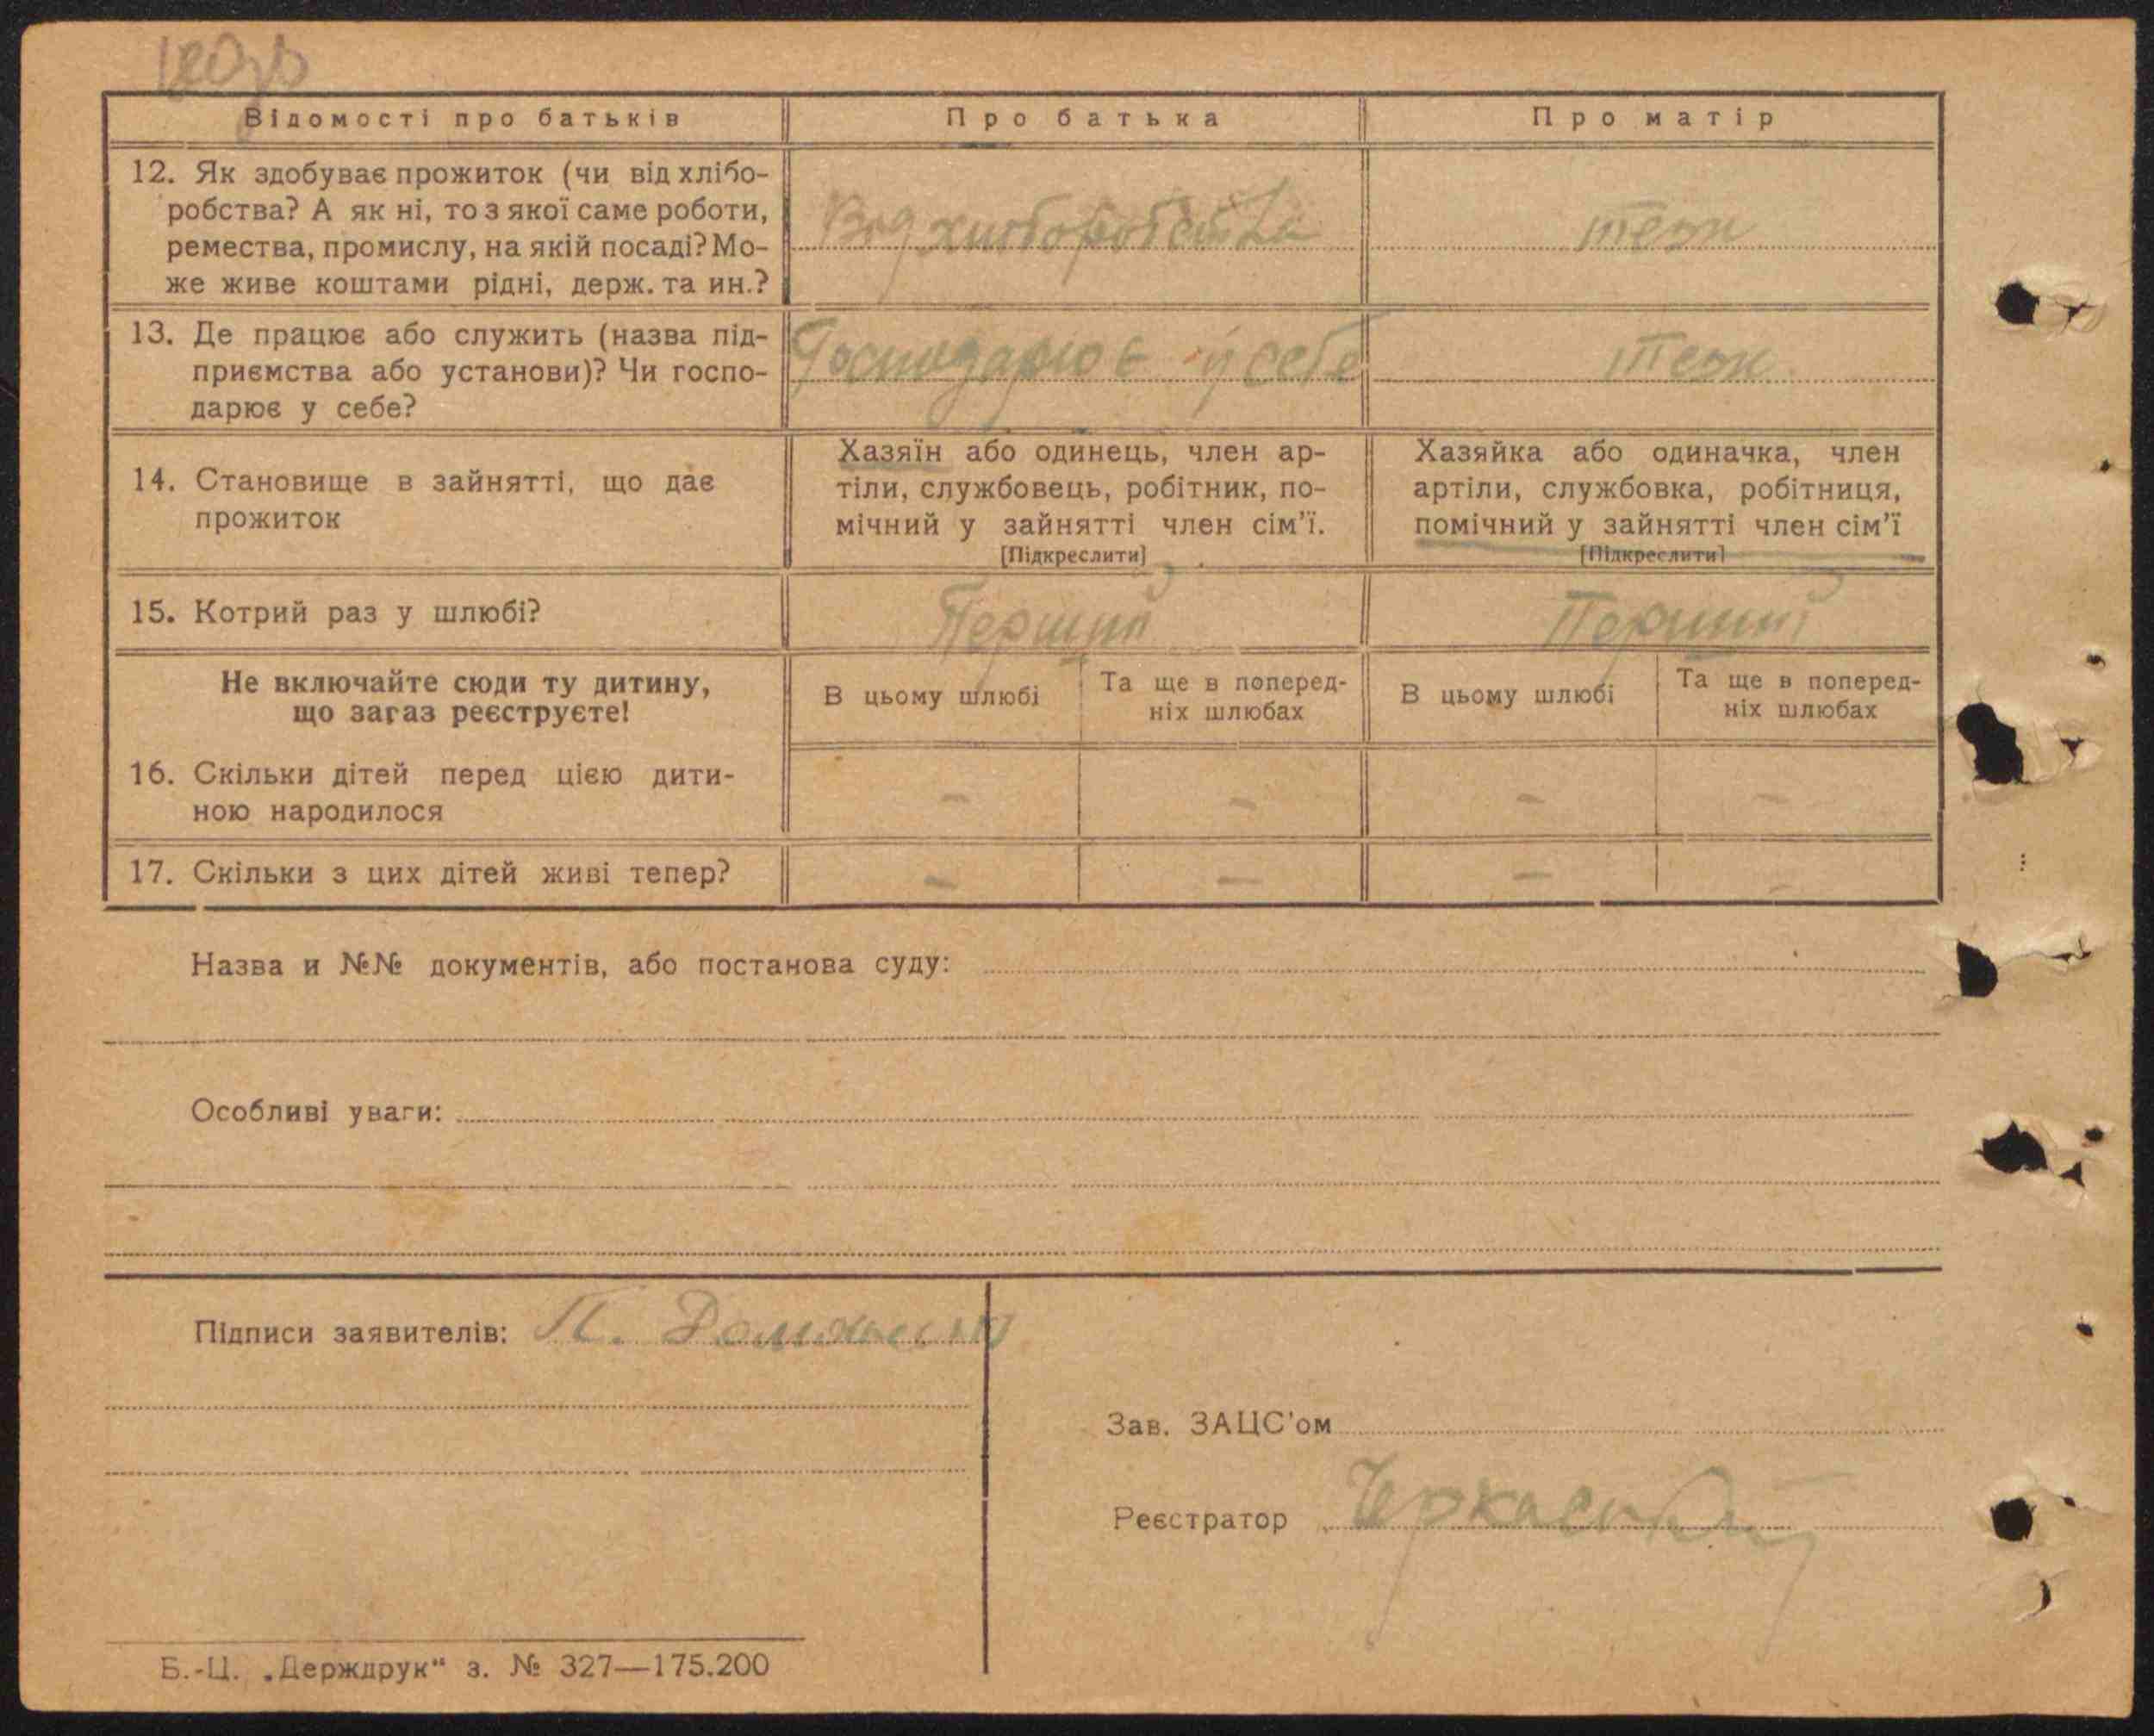 180зв
Відомості про батьків
Про батька
Про матір
12. Як здобуває прожиток (чи від хлібо-
робства? А як ні, то з якої саме роботи,
ремества, промислу, на якій посаді? Мо-
же живе коштами рідні, держ. та ин.?
Від хліборобства
теж
13. Де працює або служить (назва під-
приємства або установи)? Чи госпо-
дарює у себе?
Господарює у себе
теж
14. Становище в зайнятті, що дає
прожиток
Хазяїн або одинець, член ар-
тіли, службовець, робітник, по-
мічний у зайнятті член сім'ї.
[Підкреслити]
Хазяйка або одиначка, член
артіли, службовка, робітниця,
помічний у зайнятті член сім'ї
[Підкреслити]
15. Котрий раз у шлюбі?
Перший
Перший
Не включайте сюди ту дитину,
що загаз реєструєте!
В цьому шлюбі
Та ще в поперед-
ніх шлюбах
В цьому шлюбі
Та ще в поперед-
ніх шлюбах
16. Скільки дітей перед цією дити-
ною народилося
– – – –
17. Скільки з цих дітей живі тепер?
– – – –
Назва и №№ документів, або постанова суду:
Особливі уваги:
Підписи заявителів: П.
Зав. ЗАЦС'ом
Реєстратор Черкаський
Б.-Ц. „Держдрук" з. № 327—175.200